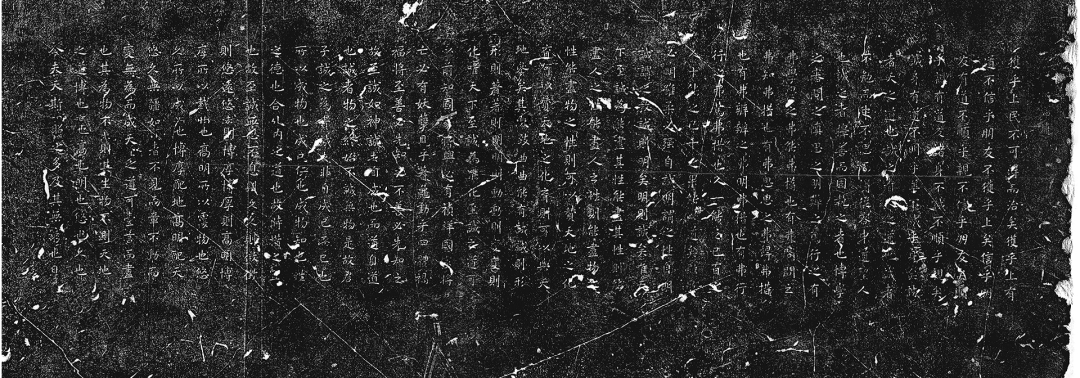 獲乎上民不可得而治矣獲乎上有
道不信乎朋友不獲乎上矣信乎朋
友有道不順乎親不信乎朋友矣順
乎親有道反諸身不誠不順乎親矣
誠身有道不明乎善不誠乎身矣誠
者天之道也誠之者人之道也誠者
不勉而中不思而得從容中道聖人
也誠之者擇善而固執之者也博學
之審問之慎思之明辨之篤行之有
弗學學之弗能弗措也有弗問問之
弗知弗措也有弗思思之弗得弗措
也有弗辨辨之弗明弗措也有弗行
行之弗篤弗措也人一能之己百之
人十能之己千之果能此道矣雖愚
必明雖柔必強自誠明謂之性自明
誠謂之教誠則明矣明則誠矣唯天
下至誠為能盡其性能盡其性則能
盡人之性能盡人之性則能盡物之
性能盡物之性則可以贊天地之化
育可以贊天地之化育則可以與天
地參矣其次致曲曲能有誠誠則形
形則著著則明明則動動則變變則
化唯天下至誠為能化至誠之道可
以前知國家將興必有禎祥國家將
亡必有妖孽見乎蓍龜動乎四體禍
福將至善必先知之不善必先知之
故至誠如神誠者自成也而道自道
也誠者物之終始不誠無物是故君
子誠之為貴誠者非自成己而已也
所以成物也成己仁也成物知也性
之德也合外內之道也故時措之宜
也故至誠無息不息則久久則徵徵
則悠遠悠遠則博厚博厚則高明博
厚所以載物也高明所以覆物也悠
久所以成物也博厚配地高明配天
悠久無疆如此者不見而章不動而
變無為而成天地之道可壹言而盡
也其為物不貳則其生物不測天地
之道博也厚也高也明也悠也久也
今夫天斯昭昭之多及其無窮也日